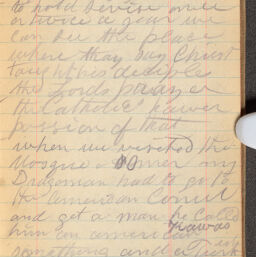 to hold Service once
or twice a year we
can see the place
where thay say Christ
taught his deciple
the Lords prayer
the Catholics never
porsion of that
when we visited the
Mosque a Omer my
Dragoman had to go to
the American Consul
and get a man he called
him an american Kawas
something and a Turk